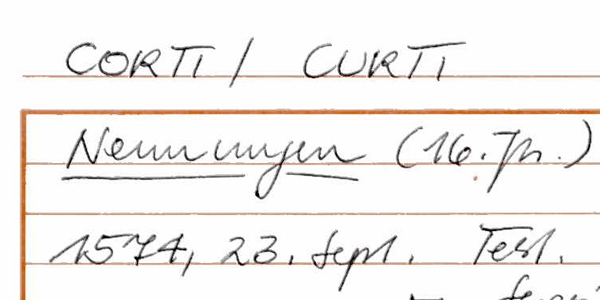 CORTI / CURTI
Nennungen (16. Jh.)
1574, 23. Sept. Test.